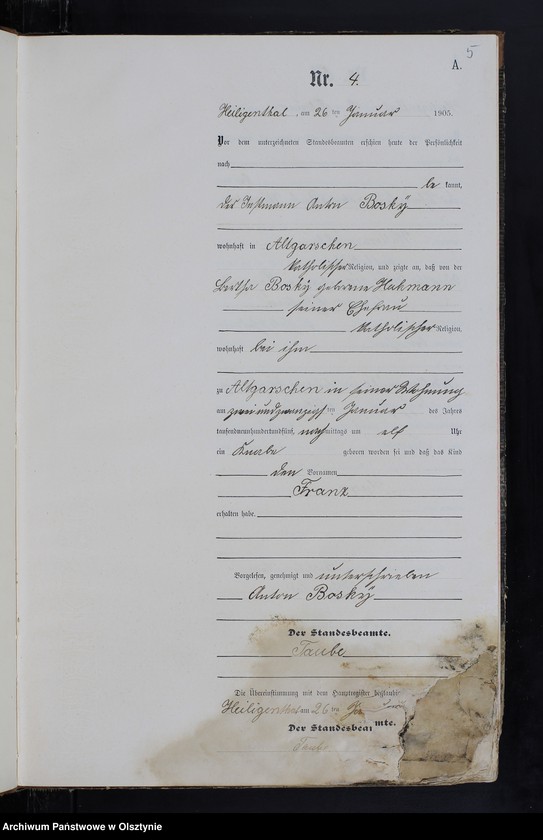 5
A.
Nr. 4.
Heiligenthal, am 26 ten Januar 1905.
Vor dem unterzeichneten Standesbeamten erschien heute der Persönlichkeit
nach
be kannt,
der Instmann Anton Bosky
wohnhaft in Altgarschen
katholischer Religion, und zeigte an, daß von der
Bertha Bosky geborene Hakmann
seiner Ehefrau
katholischer Religion,
wohnhaft bei ihm
zu Altgarschen in seiner Wohnung
am zweiundzwanzigsten Januar des Jahres
tausendneunhundertundfünf, nachmittags um elf Uhr
ein Knabe geboren worden sei und daß das Kind
den Vornamen
Franz
erhalten habe.
Vorgelesen, genehmigt und unterschrieben
Anton Bosky
Der Standesbeamte.
Taube
Die Übereinstimmung mit dem Hauptregister beglaubi
Heiligenthal am 26 ten
Der Standesbeamte.
Taube
Archiwum Państwowe w Olsztynie